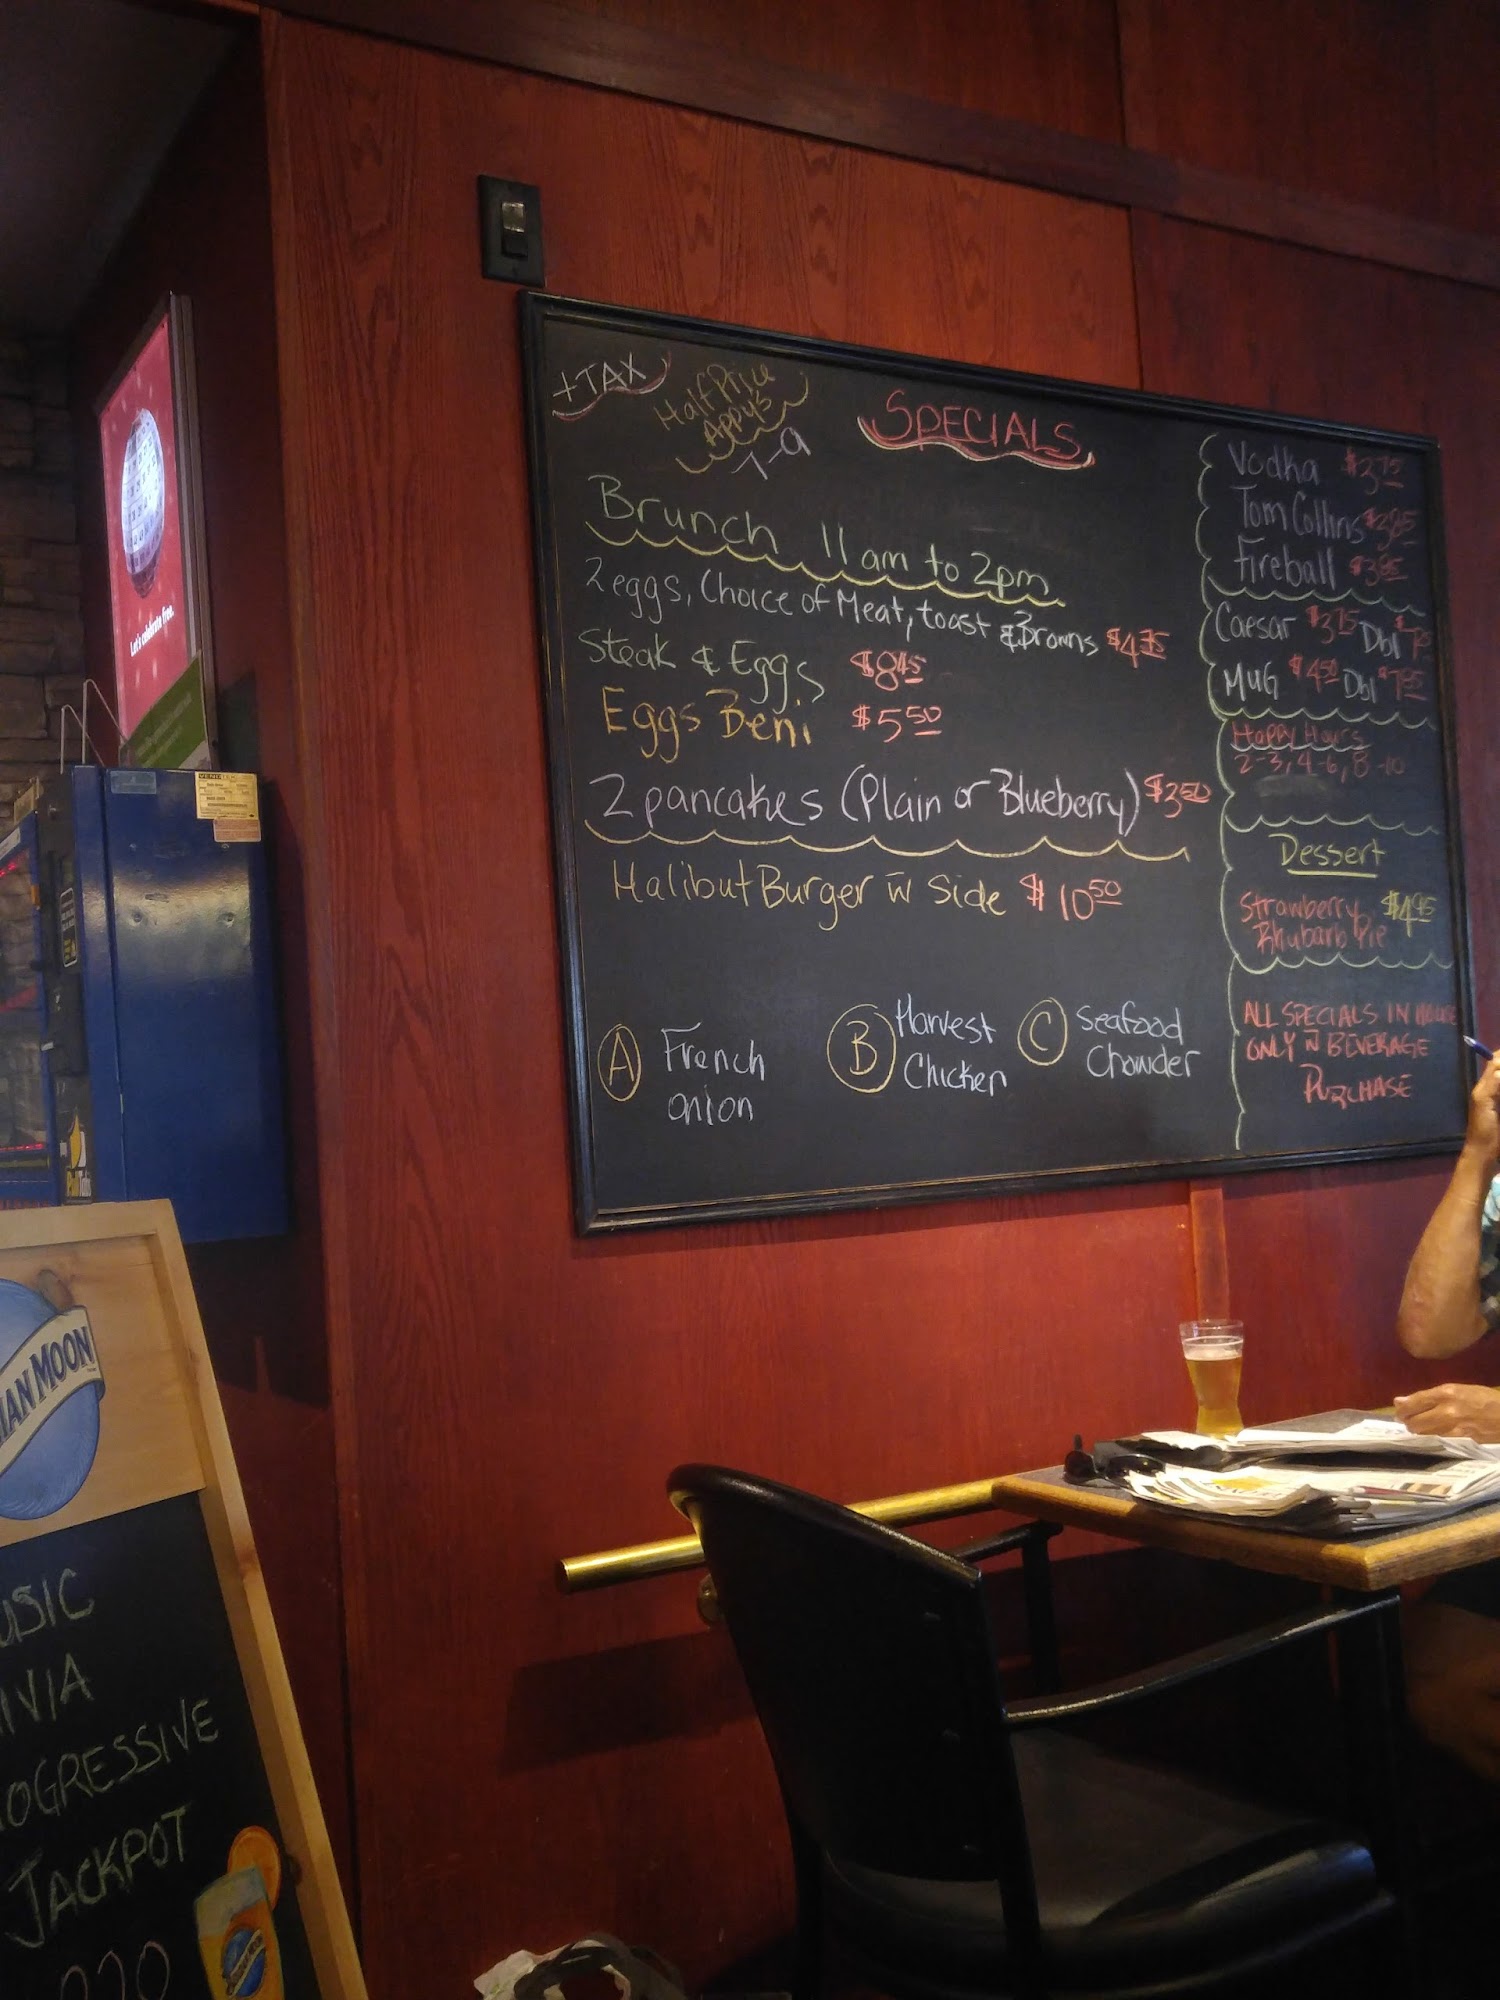 +TAX
Half Price
Appy's
7-9
SPECIALS
Brunch 11am to 2pm
2 eggs, Choice of Meat, toast & Browns $4.95
Steak & Eggs $8.45
Eggs Beni $5.50
2 pancakes (Plain or Blueberry) $3.50
Halibut Burger w Side $10.50
A French
onion
B Harvest
Chicken
C Seafood
Chowder
Vodka $3.75
Tom Collins $3.95
Fireball $3.95
Caesar $3.75 Dbl
MUG $4.50 Dbl $7.95
Happy Hours
2-3, 4-6, 8-10
Dessert
Strawberry $4.95
Rhubarb Pie
ALL SPECIALS IN HOUSE
ONLY W BEVERAGE
PURCHASE
Let's celebrate free.
IAN MOON
USIC
IVIA
OGRESSIVE
JACKPOT